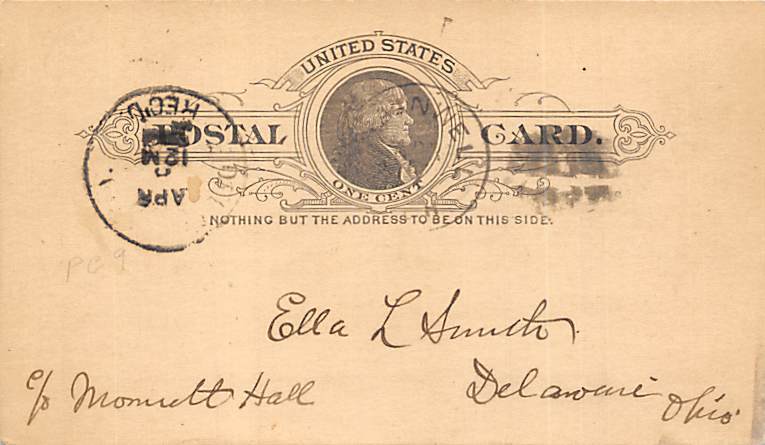 UNITED STATES
POSTAL CARD.
ONE CENT
NOTHING BUT THE ADDRESS TO BE ON THIS SIDE.
REC'D
12 M
APR
PC 9
Ella L Smith
c/o Monnett Hall
Delaware Ohio